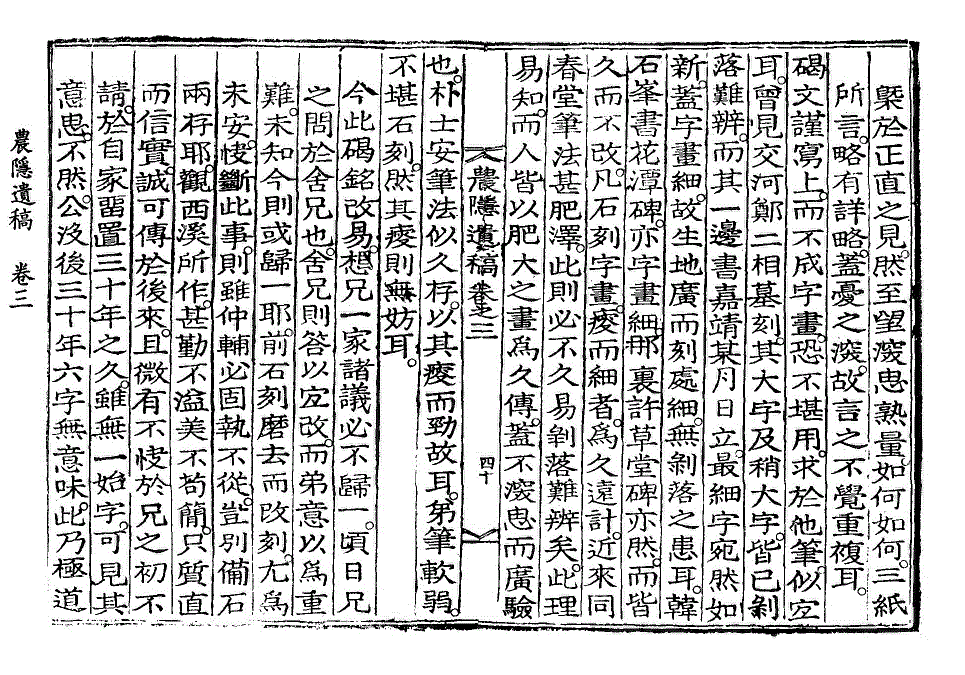 槩於正直之見。然至望深思熟量。如何如何。三紙
所言。略有詳略。蓋憂之深。故言之不覺重複耳。
碣文謹寫上。而不成字畫。恐不堪用。求於他筆似宜
耳。曾見交河鄭二相墓刻。其大字及稍大字。皆已剝
落難辨。而其一邊書嘉靖某月日立。最細字宛然如
新。蓋字畫細。故生地廣而刻處細。無剝落之患耳。韓
石峯書花潭碑。亦字畫細。那裏許草堂碑亦然。而皆
久而不改。凡石刻字畫。瘦而細者。爲久遠計。近來同
春堂筆法甚肥澤。此則必不久易剝落難辨矣。此理
易知。而人皆以肥大之畫爲久傳。蓋不深思而廣驗
農隱遺稿 卷之三
四十
也。朴士安筆法似久存。以其瘦而勁故耳。弟筆軟弱。
不堪石刻。然其瘦則無妨耳。
今此碣銘改易。想兄一家諸議必不歸一。頃日兄
之問於舍兄也。舍兄則答以宜改。而弟意以爲重
難。未知今則或歸一耶。前石刻磨去而改刻。尤爲
未安。快斷此事。則雖仲輔必固執不從。豈別備石
兩存耶。觀西溪所作。甚勤不溢美不苟簡。只質直
而信實。誠可傳於後來。且微有不快於兄之初不
請。於自家畱置三十年之久。雖無一始字。可見其
意思。不然。公沒後三十年六字無意味。此乃極道
農隱遺稿 卷三